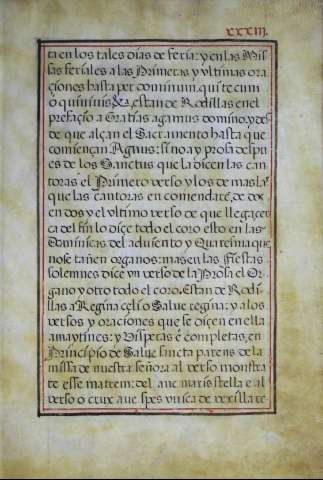 xxxiii.
ta en los tales dias de feria: y en las Mis
sas feriales a las Primeras y vltimas ora
çiones hasta per dominum. qui te cum
o quinivis &a, estan de Rodillas en el
prefaçio a Gratias agamus domino, y des
de que alçan el Sacramento hasta que
comiençan Agnus: si no ay prosa despu
es de los Sanctus que la diçen las can
toras el Primero verso y los de mas la
que las cantoras en comendare, de dos
en dos y el vltimo verso de que llega çer
ca del fin lo diçe todo el coro esto en las
Dominicas del adviento y Quaresma que
no se tañen organos: mas en las fiestas
solemnes diçe vn verso de la Prosa el Or
gano y otro todo el coro. Estan de Rodi
llas a Regina çeli o Salue regina: y a los
versos y oraçiones que se diçen en ella
a maytines: y Visperas e completas, en
Principio de Salue sancta parens de la
missa de nuestra señora al verso monstra
te esse matrem: del aue maris stella e al
verso o crux aue spes vnica de vexilla re